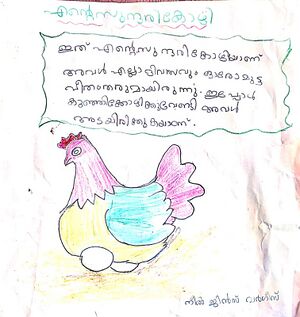 എന്റെസുന്ദരികോഴി
ഇത് എന്റെസുന്ദരികോഴിയാണ്
അവൾ എല്ലാദിവസവും ഓരോമുട്ട
വീതംതരുമായിരുന്നു. ഇപ്പോൾ
കുഞ്ഞികോഴിക്കുവേണ്ടി അവൾ
അടയിരിക്കുകയാണ്.
നീൽ ജിൻസ് വർഗീസ്